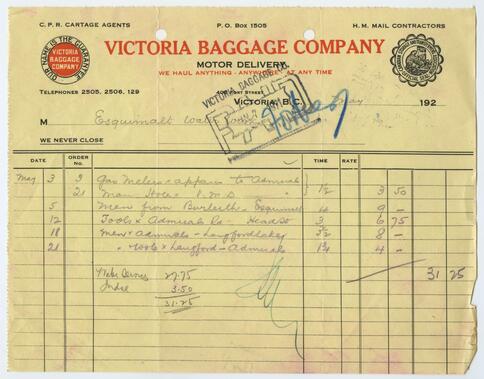 C.P.R. CARTAGE AGENTS P.O. BOX 1505 H.M. MAIL CONTRACTORS
OUR NAME IS THE GUARANTEE
VICTORIA
BAGGAGE
COMPANY
VICTORIA BAGGAGE COMPANY
MOTOR DELIVERY
WE HAUL ANYTHING - ANYWHERE AT ANY TIME
TELEPHONES 2505, 2506, 129
STREET
VICTORIA, B.C. May 192
VICTORIA BAGGAGE
M Esquimalt Water
WE NEVER CLOSE
DATE ORDER NO. TIME RATE
May 3 2 Gas Meters & appar to Admirals
21 Man Hole 1½ 3 50
5 Men from Burleith - Esquimalt 9 -
12 Tools & Admirals Rd - Head St 3 6 75
18 Men & Admirals - Langford Lake 3½ 8 -
21 " Tools & Langford - Admirals 1¾ 4 -
31 25
Water 27.75
3.50
31.25